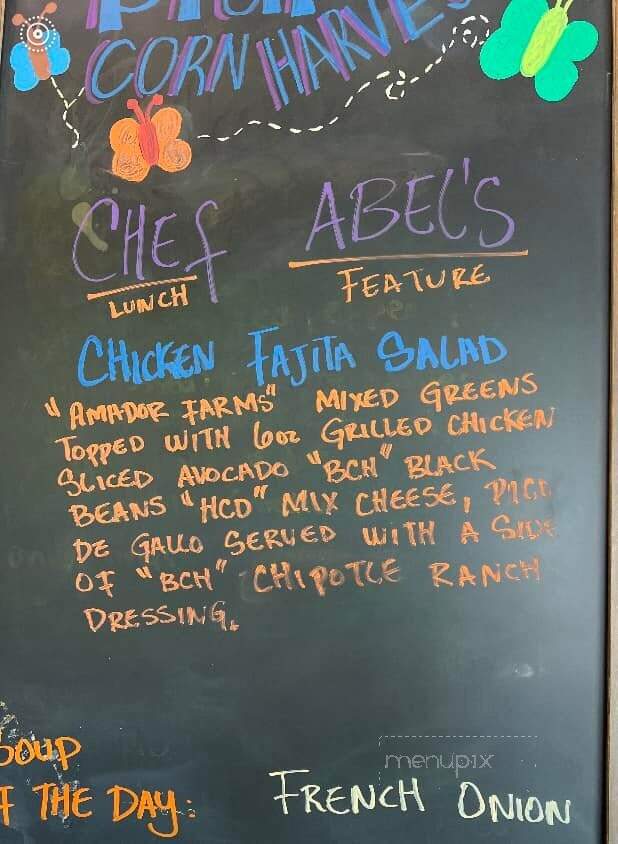 CORN HARVES
CHEF ABEL'S
LUNCH FEATURE
CHICKEN FAJITA SALAD
"AMADOR FARMS" MIXED GREENS
TOPPED WITH 6oz GRILLED CHICKEN
SLICED AVOCADO "BCH" BLACK
BEANS "HCD" MIX CHEESE, PICO
DE GALLO SERVED WITH A SIDE
OF "BCH" CHIPOTLE RANCH
DRESSING.
SOUP
OF THE DAY: FRENCH ONION
menupix